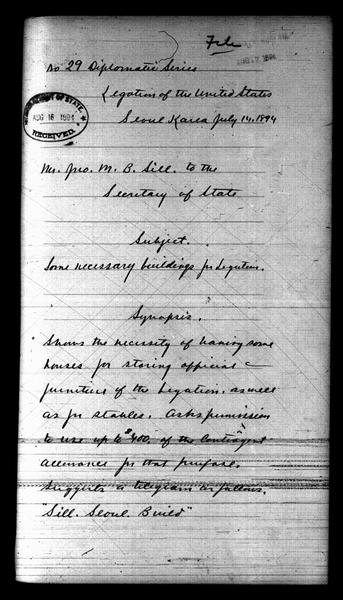 File
AUG 17 1894
No 29 Diplomatic Series
Legation of the United States
Seoul Korea July 14, 1894
DEPARTMENT OF STATE,
AUG 16 1894
RECEIVED.
Mr. Jno. M. B. Sill. to the
Secretary of State
Subject.
Some necessary buildings for Legation.
Synopsis.
Shows the necessity of having some
houses for storing official
furniture of the Legation. as well
as for stables. Asks permission
to use up to $400. of the Contingent
allowance for that purpose.
Suggests a telegram as follows.
Sill. Seoul. Build"